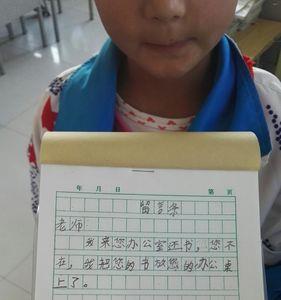 年 月 日 第 页
留言条
老师
我来您办公室还书，您不
在，我把您的书放您的办公桌
上了。